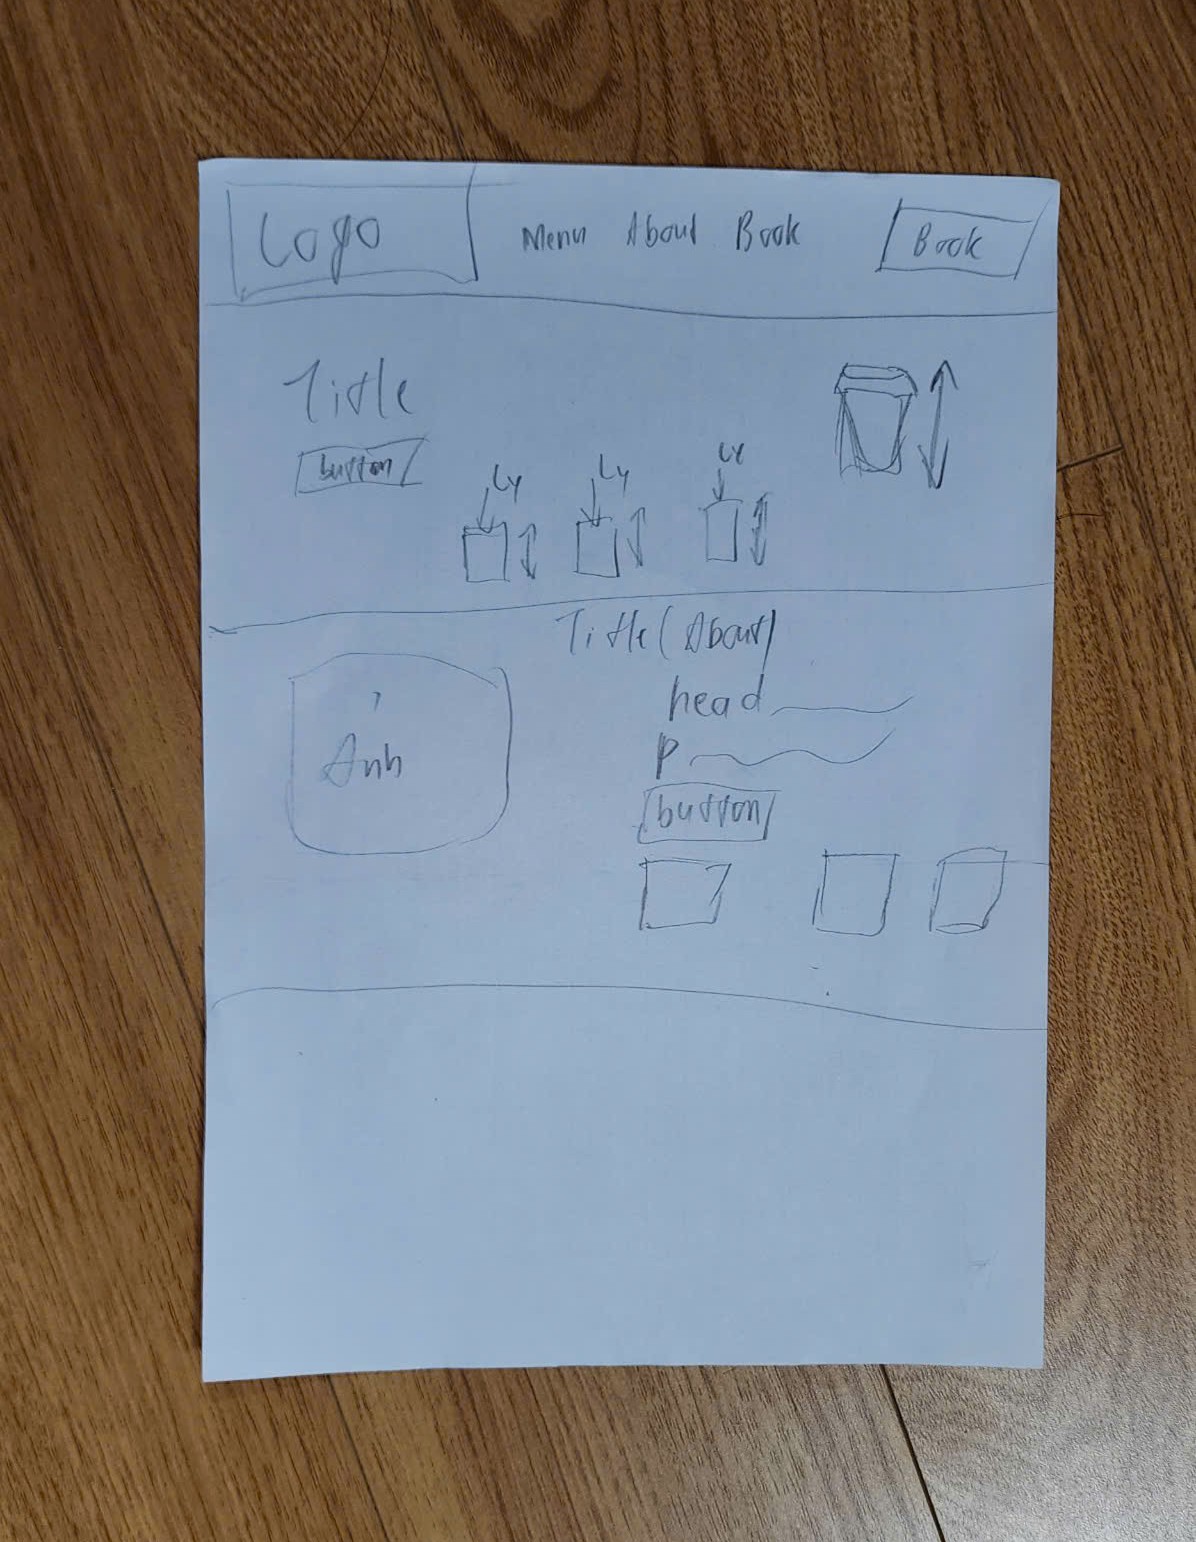 Logo Menu About Book Book
Title
button
Ly Ly Ly
Title (About)
head
Anh
p
button